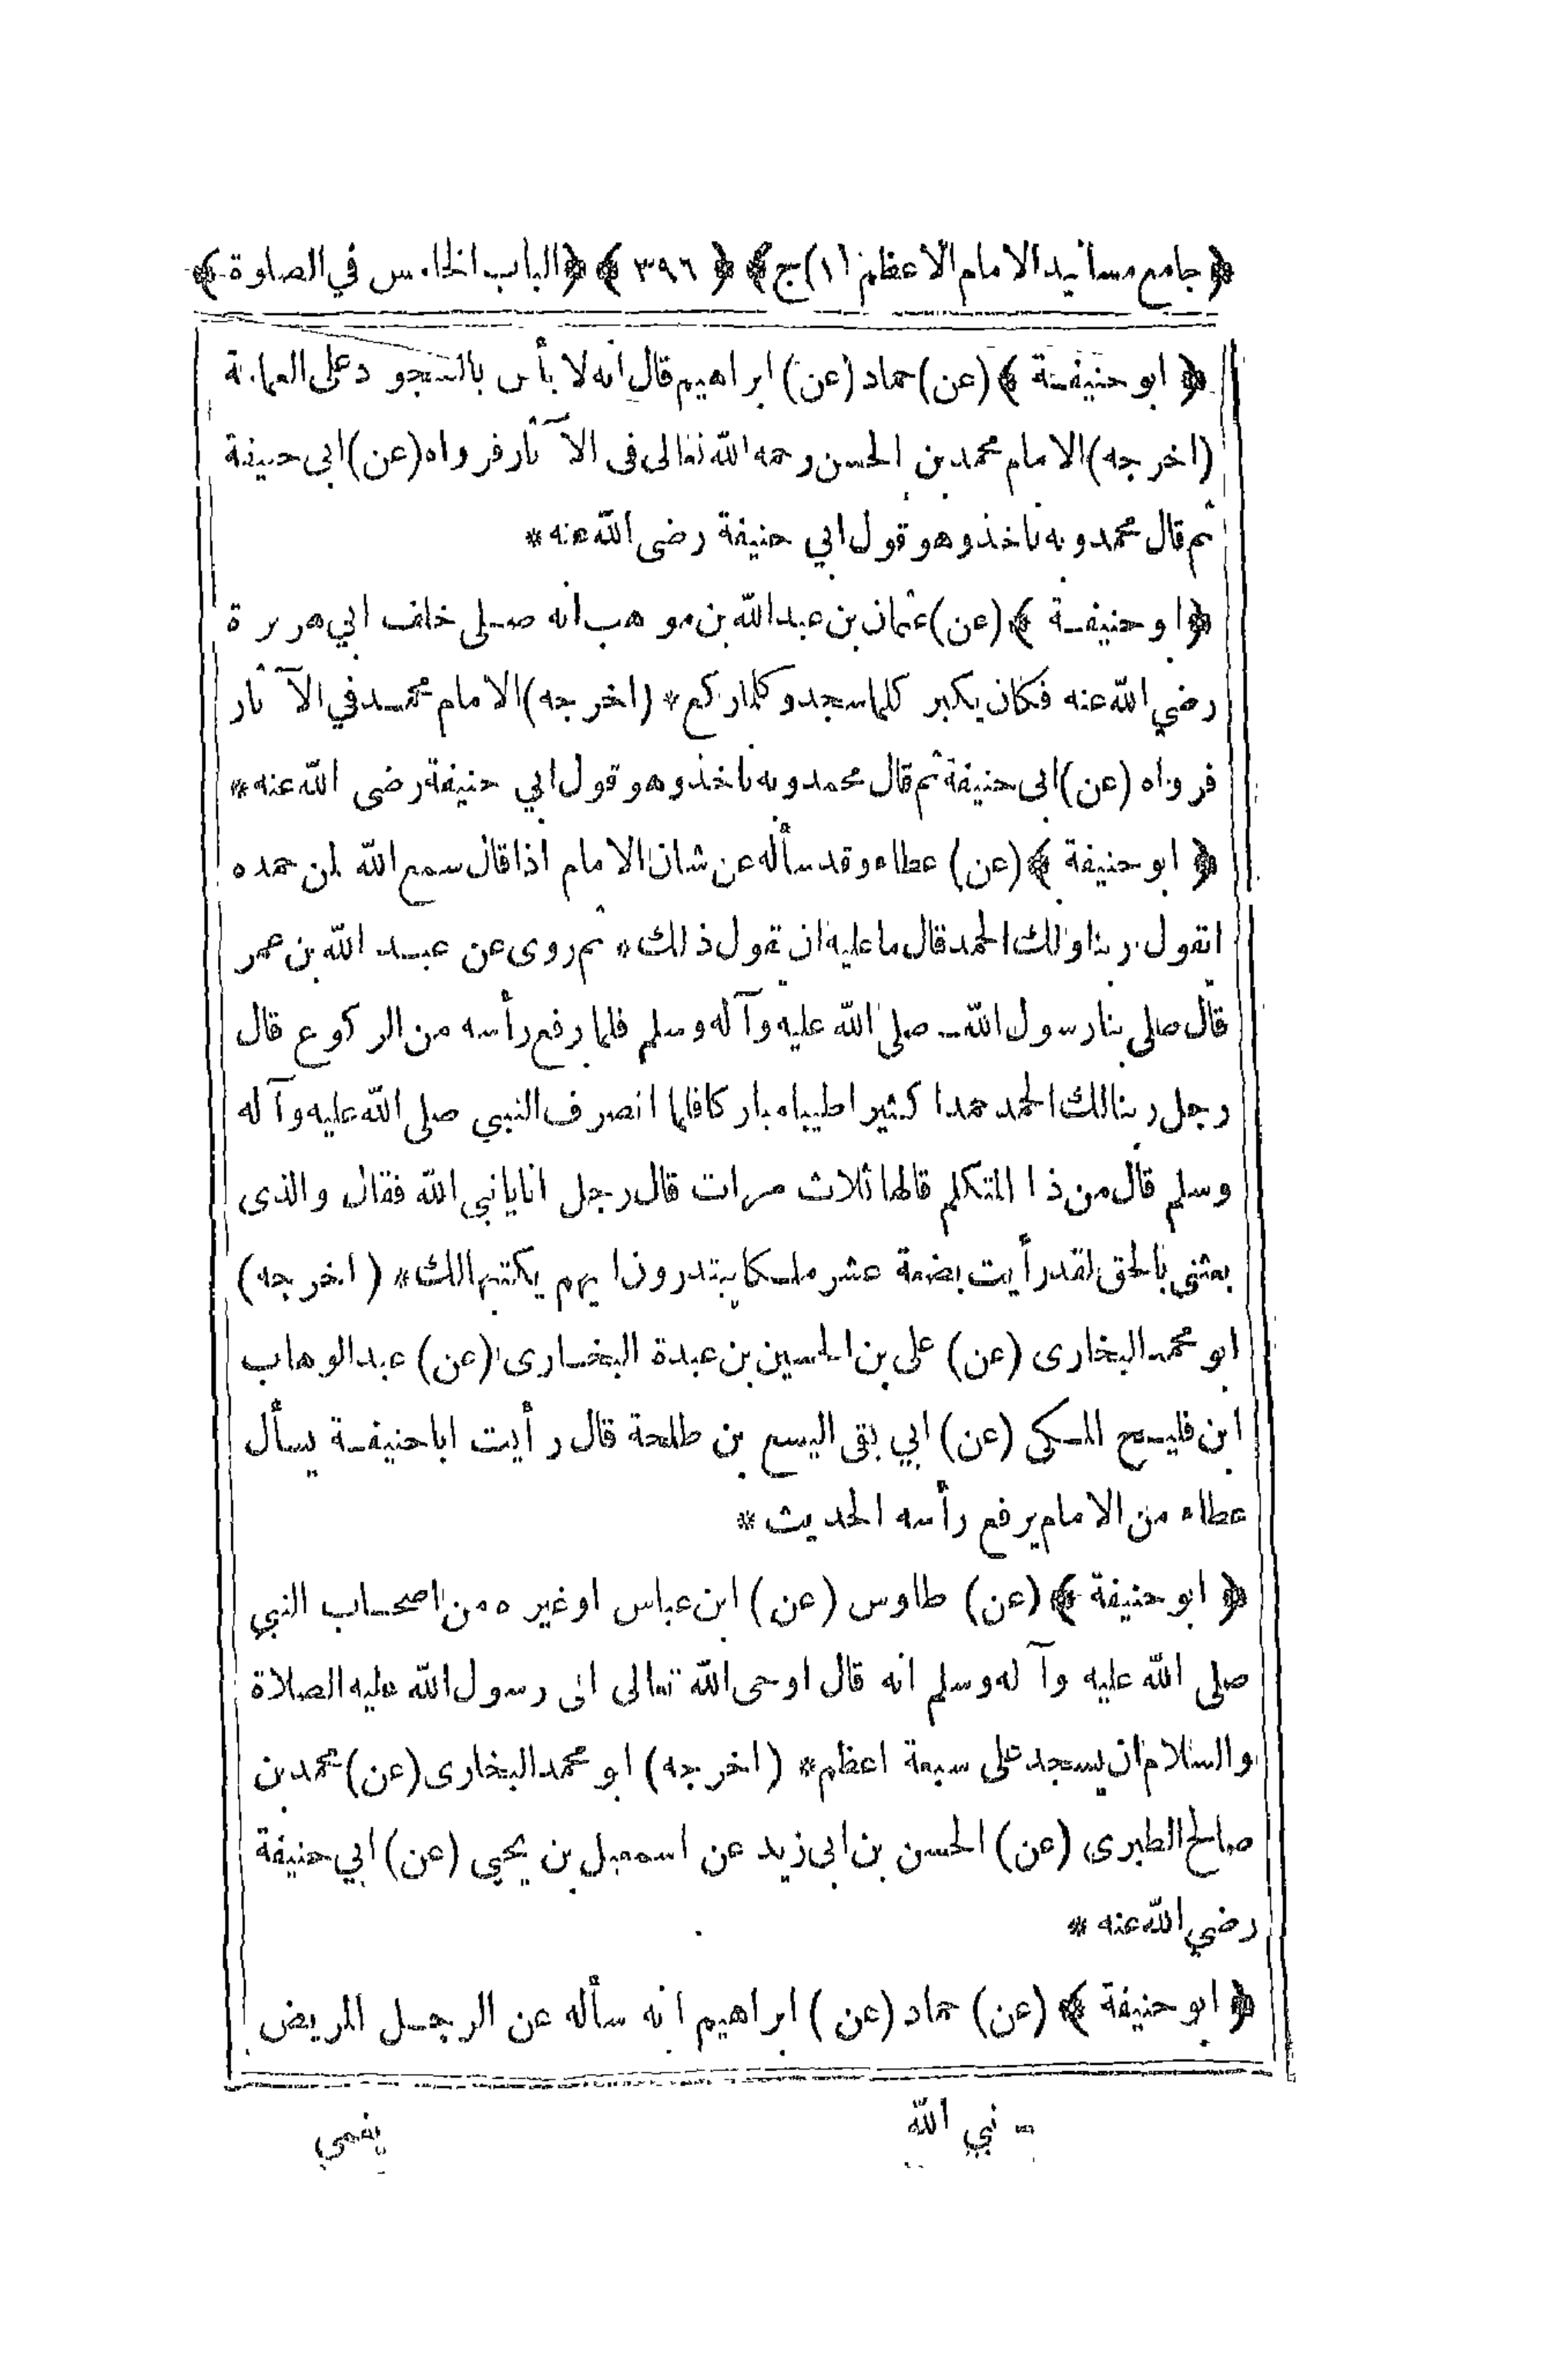 ﴿جامع مسانيد الامام الاعظم (١) ج﴾ ﴿٣٩٦﴾ ﴿الباب الخامس في الصلوة﴾
﴿ ابو حنيفة ﴾ (عن) حماد (عن) ابراهيم قال انه لا بأس بالسجود على العمامة
(اخرجه) الامام محمد بن الحسن رحمه الله تعالى فى الآثار فرواه (عن) ابى حنيفة
ثم قال محمد وبه ناخذ وهو قول ابي حنيفة رضى الله عنه *
﴿ ابو حنيفة ﴾ (عن) عثمان بن عبد الله بن موهب انه صلى خلف ابي هريرة
رضي الله عنه فكان يكبر كلما سجد وكلما ركع * (اخرجه) الامام محمد في الآثار
فرواه (عن) ابى حنيفة ثم قال محمد وبه ناخذ وهو قول ابي حنيفة رضى الله عنه *
﴿ ابو حنيفة ﴾ (عن) عطاء وقد سأله عن شان الامام اذا قال سمع الله لمن حمده
اتقول ربنا ولك الحمد قال ما عليه ان يقول ذلك * ثم روى عن عبد الله بن عمر
قال صلى بنا رسول الله ـ صلى الله عليه وآله وسلم فلما رفع رأسه من الركوع قال
رجل ربنا لك الحمد حمدا كثيرا طيبا مباركا فلما انصرف النبي صلى الله عليه وآله
وسلم قال من ذا المتكلم قالها ثلاث مرات قال رجل انا يا نبي الله فقال والذى
بعثنى بالحق لقد رأيت بضعة عشر ملكا يبتدرون ايهم يكتبها لك * (اخرجه)
ابو محمد البخارى (عن) على بن الحسين بن عبدة البخارى (عن) عبد الوهاب
ابن فليح المكى (عن) ابي بقى اليسع بن طلحة قال رأيت ابا حنيفة يسأل
عطاء من الامام يرفع رأسه الحديث *
﴿ ابو حنيفة ﴾ (عن) طاوس (عن) ابن عباس او غيره من اصحاب النبي
صلى الله عليه وآله وسلم انه قال اوحى الله تعالى الى رسول الله عليه الصلاة
والسلام ان يسجد على سبعة اعظم * (اخرجه) ابو محمد البخارى (عن) محمد بن
صالح الطبرى (عن) الحسن بن ابى زيد عن اسمعيل بن يحيى (عن) ابي حنيفة
رضي الله عنه *
﴿ ابو حنيفة ﴾ (عن) حماد (عن) ابراهيم انه سأله عن الرجل المريض
ـ نبي الله
يغمى